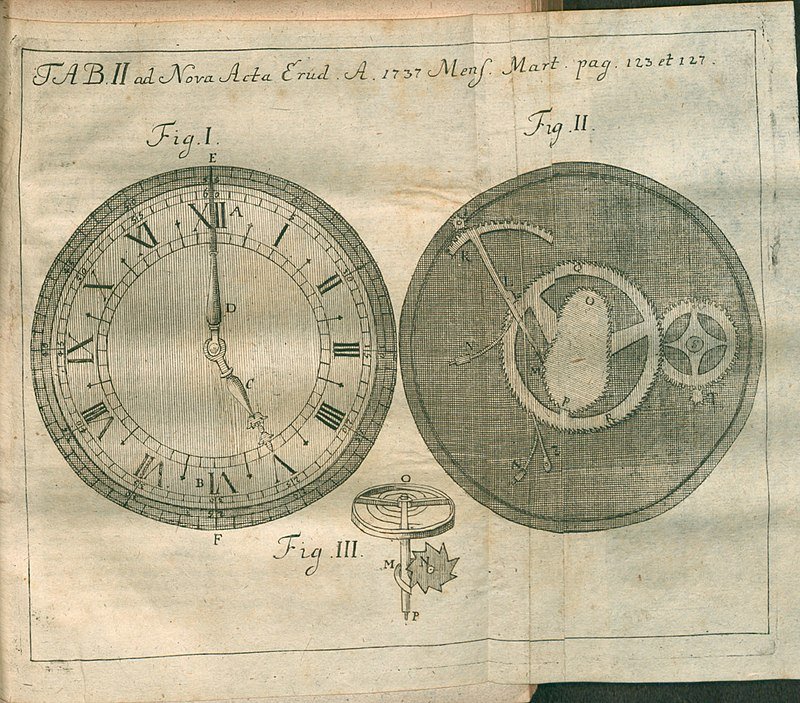 TAB. II ad Nova Acta Erud. A. 1737 Mens. Mart. pag. 123 et 127.
Fig. I.
E
60
XII
A
I
II
III
IIII
V
VI
VIII
IX
X
D
C
B
F
Fig. II.
K
L
Q
O
M
P
R
S
T
Fig. III.
O
M
N
P